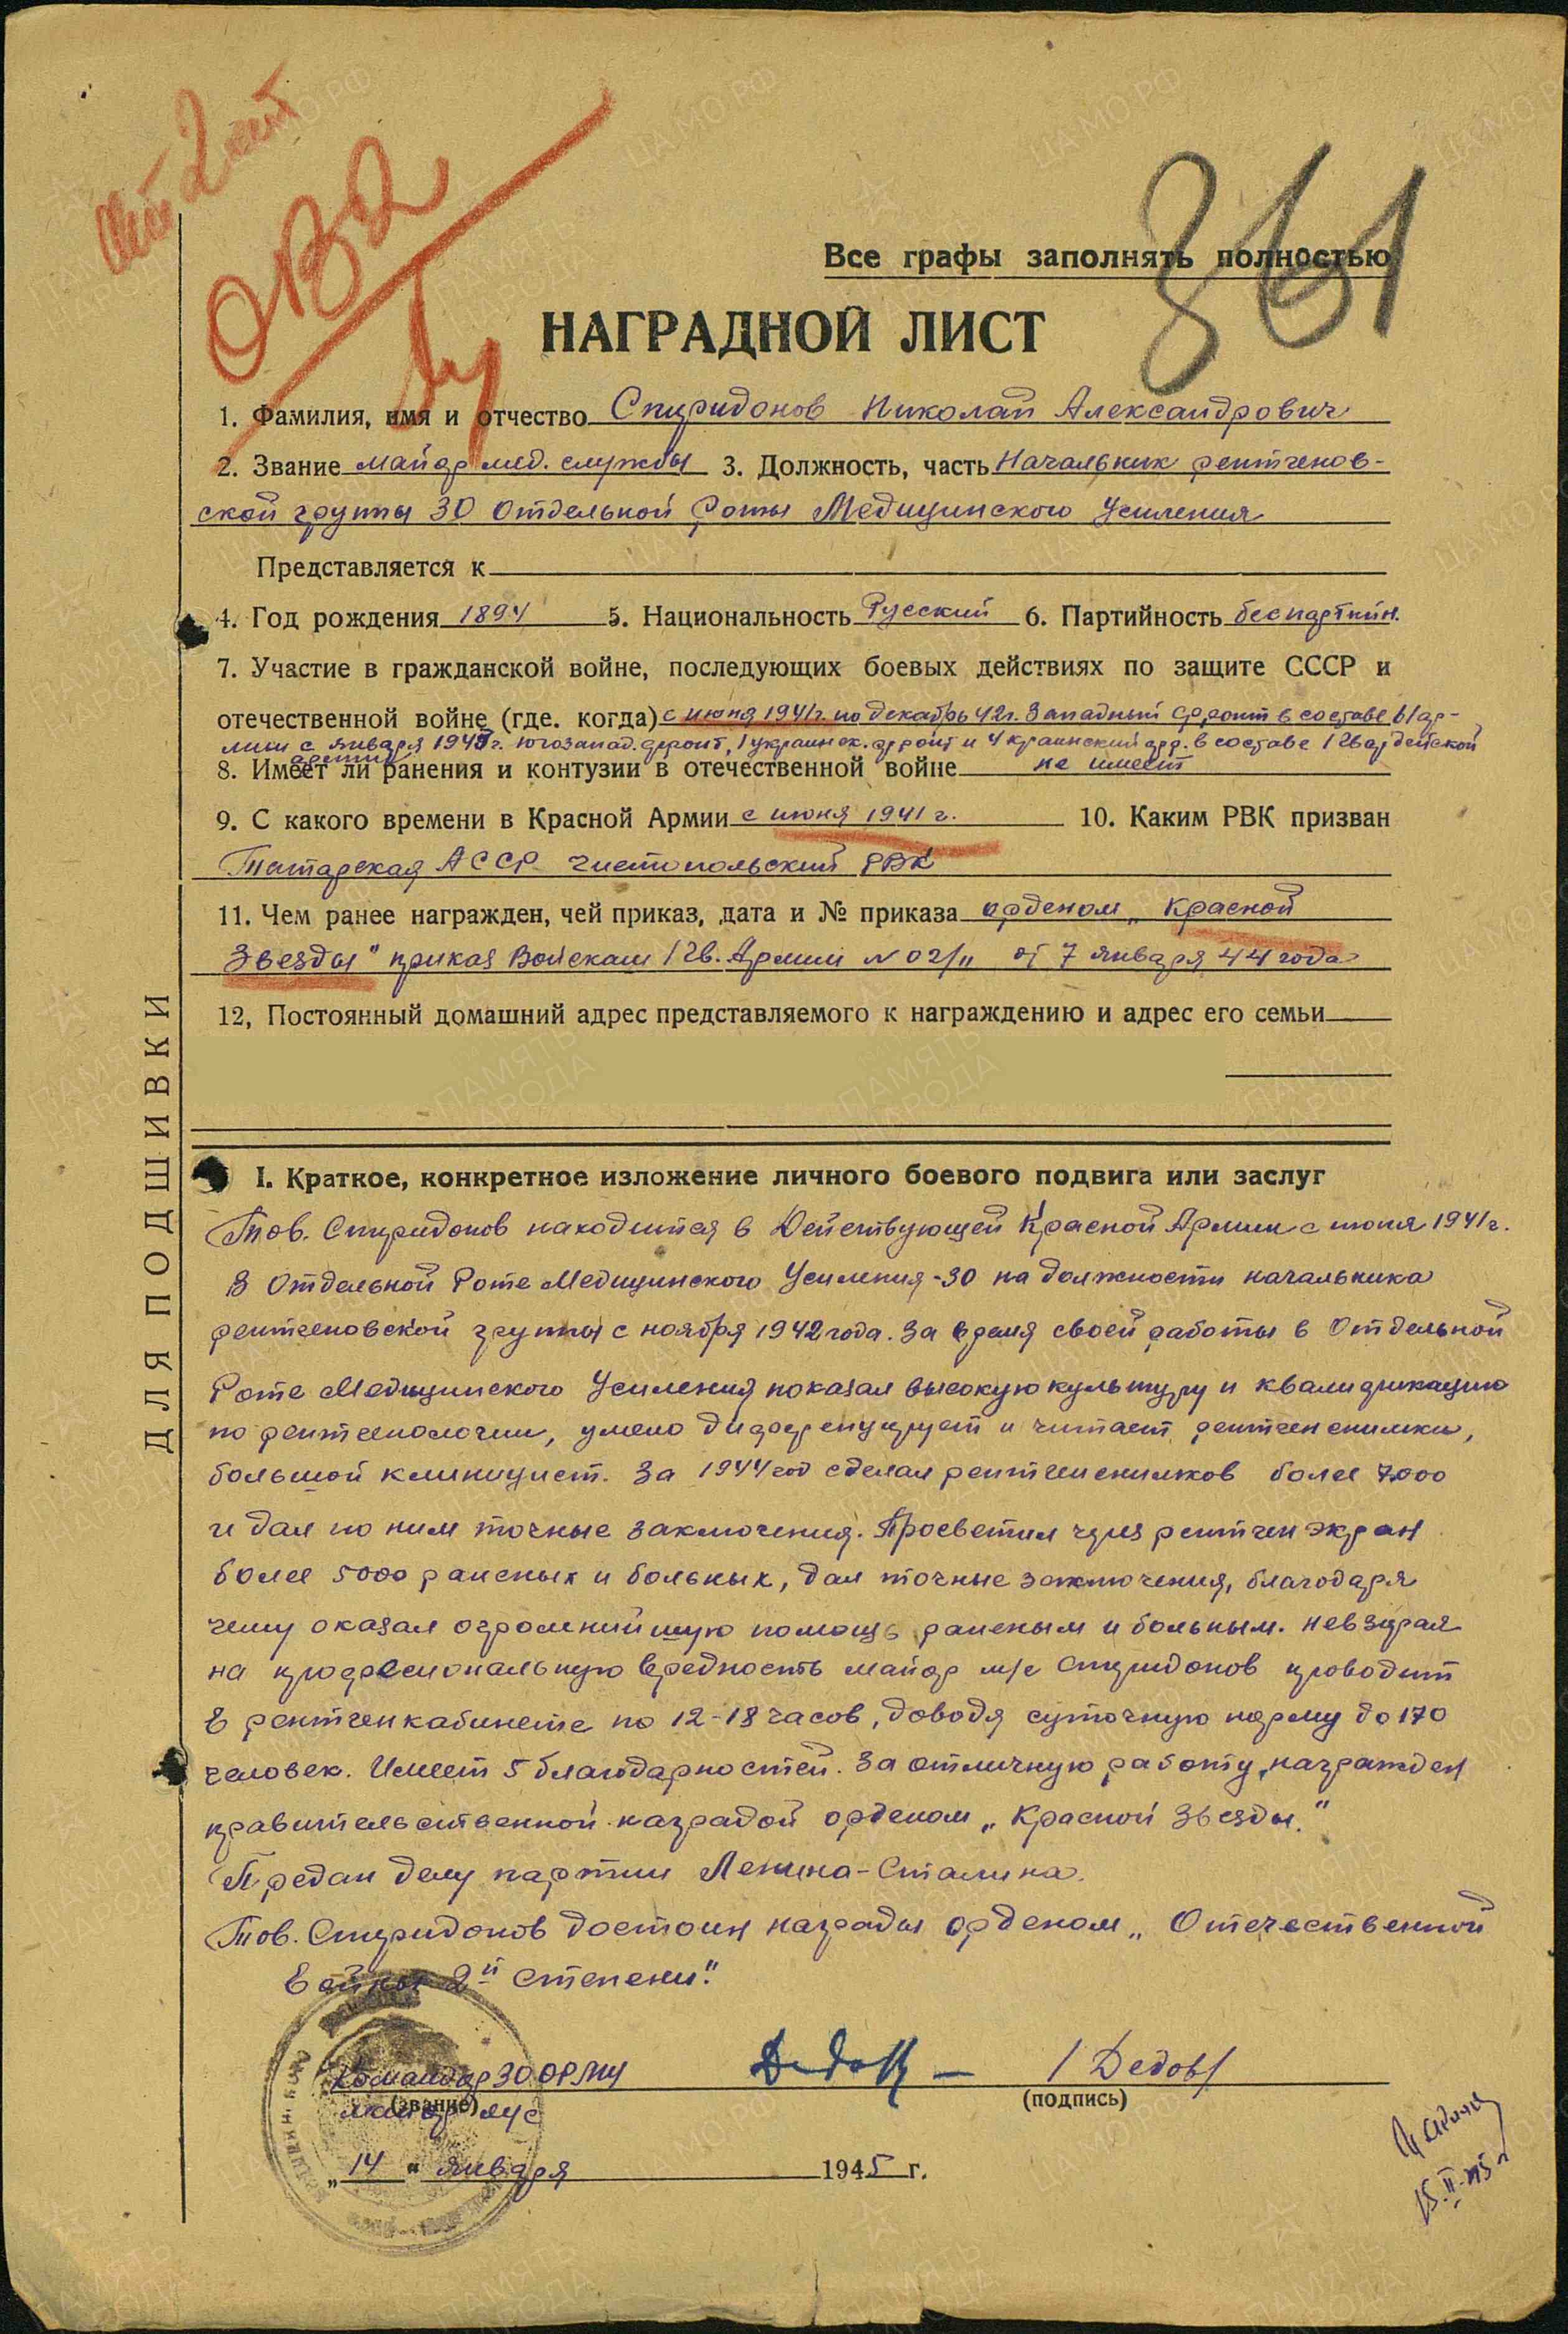 ОВ2
361
Все графы заполнять полностью
НАГРАДНОЙ ЛИСТ
1. Фамилия, имя и отчество Спиридонов Николай Александрович
2. Звание майор мед. службы 3. Должность, часть Начальник рентгенов-
ской группы 30 Отдельной Роты Медицинского Усиления
Представляется к
4. Год рождения 1894 5. Национальность Русский 6. Партийность беспартийн.
7. Участие в гражданской войне, последующих боевых действиях по защите СССР и
отечественной войне (где. когда) с июня 1941г. по декабрь 42г. Западный фронт в составе 61 ар-
мии с января 1943г. Югозапад. фронт, 1 украинск. фронт и 4 краинский фр. в составе 1 Гвардейской
армии
8. Имеет ли ранения и контузии в отечественной войне не имеет
9. С какого времени в Красной Армии с июня 1941 г. 10. Каким РВК призван
Татарская АССР Чистопольский РВК
11. Чем ранее награжден, чей приказ, дата и № приказа орденом „Красной
Звезды" приказ Войскам 1 Гв. Армии N 02/н от 7 января 44 года
12, Постоянный домашний адрес представляемого к награждению и адрес его семьи
ДЛЯ ПОДШИВКИ
I. Краткое, конкретное изложение личного боевого подвига или заслуг
Тов. Спиридонов находится в Действующей Красной Армии с июня 1941г.
В Отдельной Роте Медицинского Усиления-30 на должности начальника
рентгеновской группы с ноября 1942 года. За время своей работы в Отдельной
Роте Медицинского Усиления показал высокую культуру и квалификацию
по рентгенологии, умело дифференцирует и читает рентгенснимки,
большой клиницист. За 1944 год сделал рентгенснимков более 7000
и дал по ним точные заключения. Просветил через рентген экран
более 5000 раненых и больных, дал точные заключения, благодаря
чему оказал огромнийшую помощь раненым и больным. Невзирая
на профессиональную вредность майор м/с Спиридонов проводит
в рентгенкабинете по 12-18 часов, доводя суточную норму до 170
человек. Имеет 5 благодарностей. За отличную работу, награжден
правительственной наградой орденом „Красной Звезды."
Предан делу партии Ленина-Сталина.
Тов. Спиридонов достоин награды орденом „Отечественной
Войны 2й степени".
Командир 30 ОРМУ /Дедов/
(звание) (подпись)
майор м/с
„14" января 1945 г.